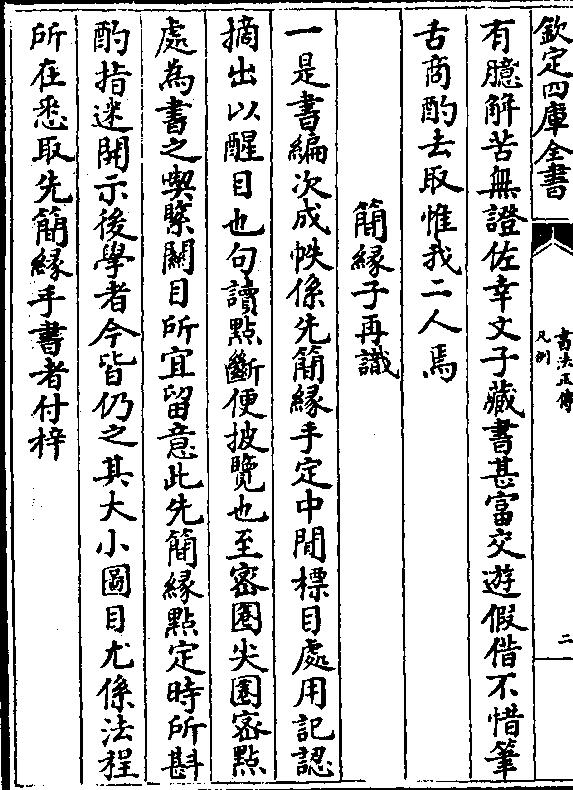 欽定四庫全書
書法正傳
凡例
二
有臆解苦無證佐幸文子藏書甚富交遊假借不惜筆
舌商酌去取惟我二人焉
簡緣子再識
一是書編次成帙係先簡緣手定中間標目處用記認
摘出以醒目也句讀點斷便披覽也至密圏尖圏密點
處為書之喫緊關目所宜留意此先簡緣點定時所斟
酌指迷開示後學者今皆仍之其大小圖目尤係法程
所在悉取先簡緣手書者付梓